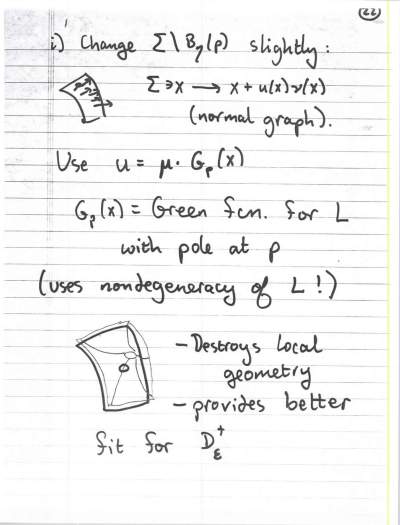 22
i) Change Σ\B_η(p) slightly:
Σ∋x → x + u(x)ν(x)
(normal graph).
Use u = μ · G_p(x)
G_p(x) = Green fcn. for L
with pole at p
(uses nondegeneracy of L!)
- Destroys local
geometry
- provides better
fit for D_ε^+